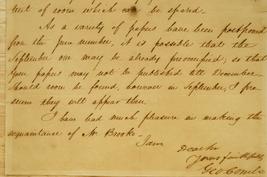 tent of room which can be spared.
As a variety of papers have been postponed
from the June number, it is possible that the
September one may be already preoccupied, so that
your papers may not be published till December.
Should room be found, however in September, I pre-
sume they will appear then.
I have had much pleasure in making the
acquaintance of Mr. Brooke.
I am
Dear Sir
Yours faithfully
Geo Combe